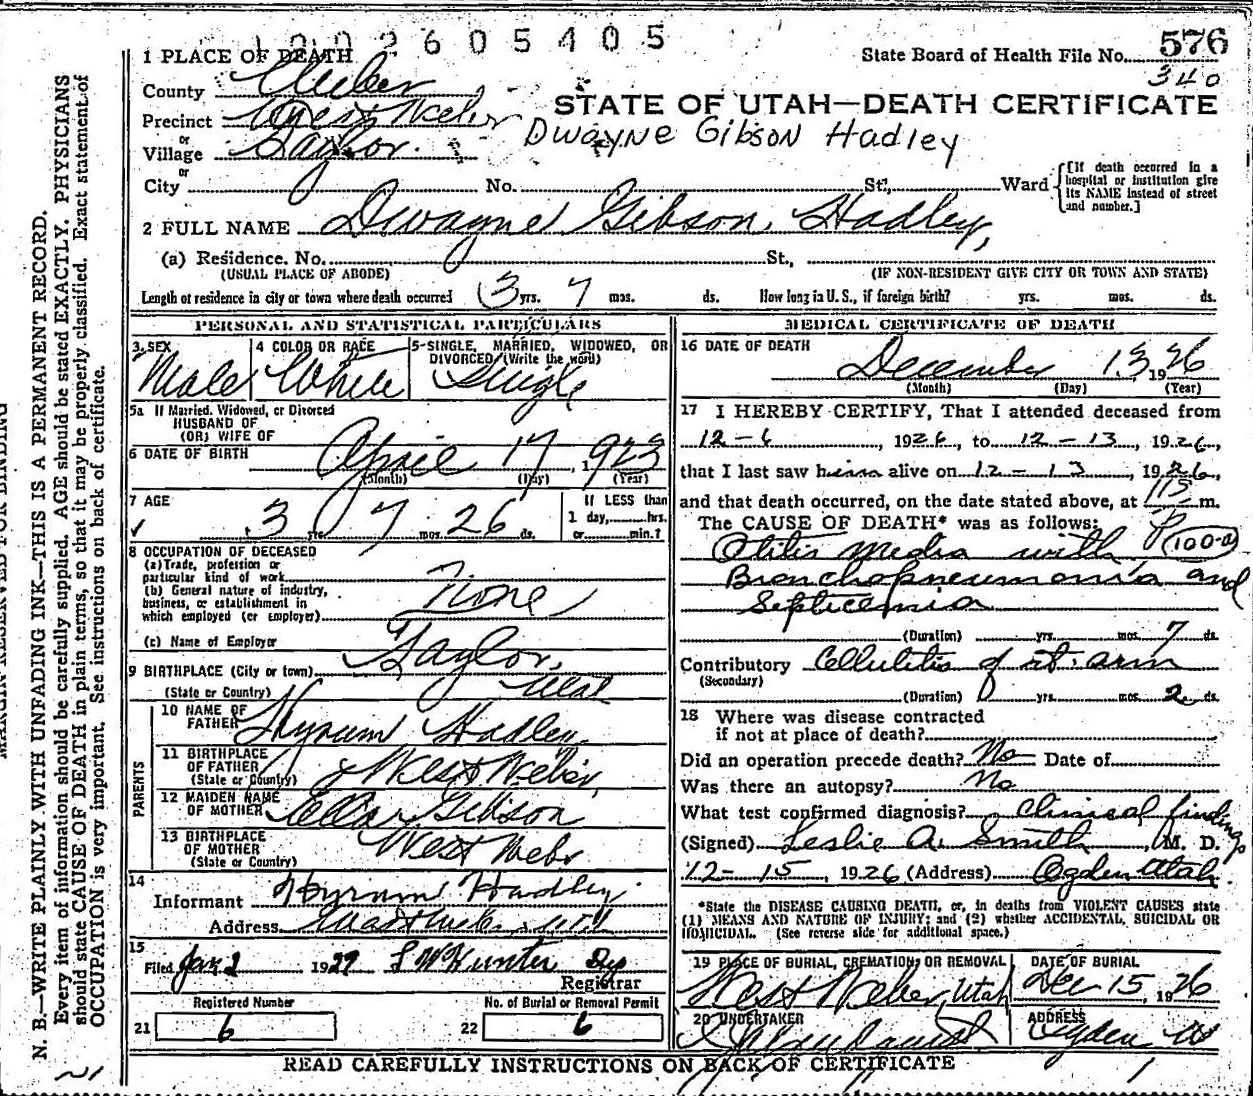 1002605405
1 PLACE OF DEATH
State Board of Health File No. 576
340
County Weber
STATE OF UTAH—DEATH CERTIFICATE
Precinct West Weber
Dwayne Gibson Hadley
or
Village Taylor.
or
City No. St., Ward
[If death occurred in a hospital or institution give its NAME instead of street and number.]
2 FULL NAME Dwayne Gibson Hadley,
(a) Residence. No. St.,
(USUAL PLACE OF ABODE) (IF NON-RESIDENT GIVE CITY OR TOWN AND STATE)
Length of residence in city or town where death occurred 3 yrs. 7 mos. ds. How long in U. S., if foreign birth? yrs. mos. ds.
PERSONAL AND STATISTICAL PARTICULARS
3. SEX 4 COLOR OR RACE 5-SINGLE, MARRIED, WIDOWED, OR
DIVORCED (Write the word)
Male White Single
5a If Married, Widowed, or Divorced
HUSBAND OF
(OR) WIFE OF
6 DATE OF BIRTH April 17 1923
(Month) (Day) (Year)
7 AGE If LESS than
3 yrs. 7 mos. 26 ds. 1 day, hrs.
or min.?
8 OCCUPATION OF DECEASED
(a) Trade, profession or
particular kind of work
(b) General nature of industry,
business, or establishment in
which employed (or employer) None
(c) Name of Employer
9 BIRTHPLACE (City or town) Taylor,
(State or Country) Utah
PARENTS
10 NAME OF
FATHER Hyrum Hadley
11 BIRTHPLACE
OF FATHER West Weber
(State or Country)
12 MAIDEN NAME
OF MOTHER Ella Gibson
13 BIRTHPLACE
OF MOTHER West Weber
(State or Country)
14
Informant Hyrum Hadley
Address West Weber, Utah
15
Filed Jan 2 1927 Hunter Dy
Registrar
Registered Number No. of Burial or Removal Permit
21 6 22 6
MEDICAL CERTIFICATE OF DEATH
16 DATE OF DEATH
December 13, 1926
(Month) (Day) (Year)
17 I HEREBY CERTIFY, That I attended deceased from
12-6, 1926, to 12-13, 1926,
that I last saw him alive on 12-13, 1926,
and that death occurred, on the date stated above, at 115 P m.
The CAUSE OF DEATH* was as follows:
Otitis Media with (100-a)
Bronchopneumonia and
Septicemia
(Duration) yrs. mos. 7 ds.
Contributory Cellulitis of rt. arm
(Secondary)
(Duration) yrs. mos. 2 ds.
18 Where was disease contracted
if not at place of death?
Did an operation precede death? No Date of
Was there an autopsy? No
What test confirmed diagnosis? Clinical findings
(Signed) Leslie A. Smith, M. D.
12-15, 1926 (Address) Ogden Utah.
*State the DISEASE CAUSING DEATH, or, in deaths from VIOLENT CAUSES state
(1) MEANS AND NATURE OF INJURY; and (2) whether ACCIDENTAL, SUICIDAL OR
HOMICIDAL. (See reverse side for additional space.)
19 PLACE OF BURIAL, CREMATION, OR REMOVAL DATE OF BURIAL
West Weber, Utah Dec 15, 1926
20 UNDERTAKER ADDRESS
Ogden Ut
READ CAREFULLY INSTRUCTIONS ON BACK OF CERTIFICATE
MARGIN RESERVED FOR BINDING
N. B.—WRITE PLAINLY WITH UNFADING INK—THIS IS A PERMANENT RECORD.
Every item of information should be carefully supplied. AGE should be stated EXACTLY. PHYSICIANS
should state CAUSE OF DEATH in plain terms, so that it may be properly classified. Exact statement of
OCCUPATION is very important. See instructions on back of certificate.